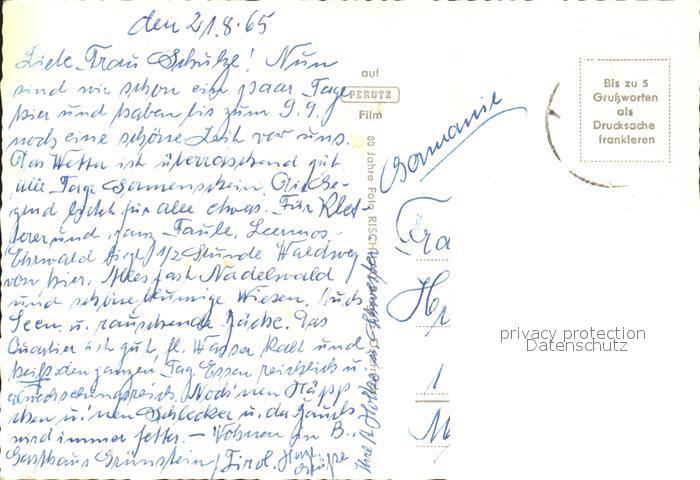 den 21.8.65
Liebe Frau Schulze! Nun
sind wir schon ein paar Tage
hier und haben bis zum 9.9.
noch eine schöne Zeit vor uns.
Das Wetter ist überraschend gut
alle Tage Sonnenschein. Die Ge-
gend bietet für alle etwas. Für Klet-
terer und ganz Faule. Lermos-
Ehrwald liegt 1/2 Stunde Waldweg
von hier. Alles fast Nadelwald
und schöne blumige Wiesen. Auch
Seen u. rauschende Bäche. Das
Quartier ist gut, fl. Wasser kalt und
heiß den ganzen Tag. Essen reichlich u.
abwechslungsreich. Noch 'nen Häpp
chen u. 'nen Schlecker u. der Bauch
wird immer fetter. — Wohnen in B..
Gasthaus Grünstein/Tirol. Herzl.
Grüße
Ihre
auf
PERUTZ
Film
80 Jahre Foto RISCH
Germanie
Fra
H
1
M
Bis zu 5
Grußworten
als
Drucksache
frankieren
privacy protection
Datenschutz